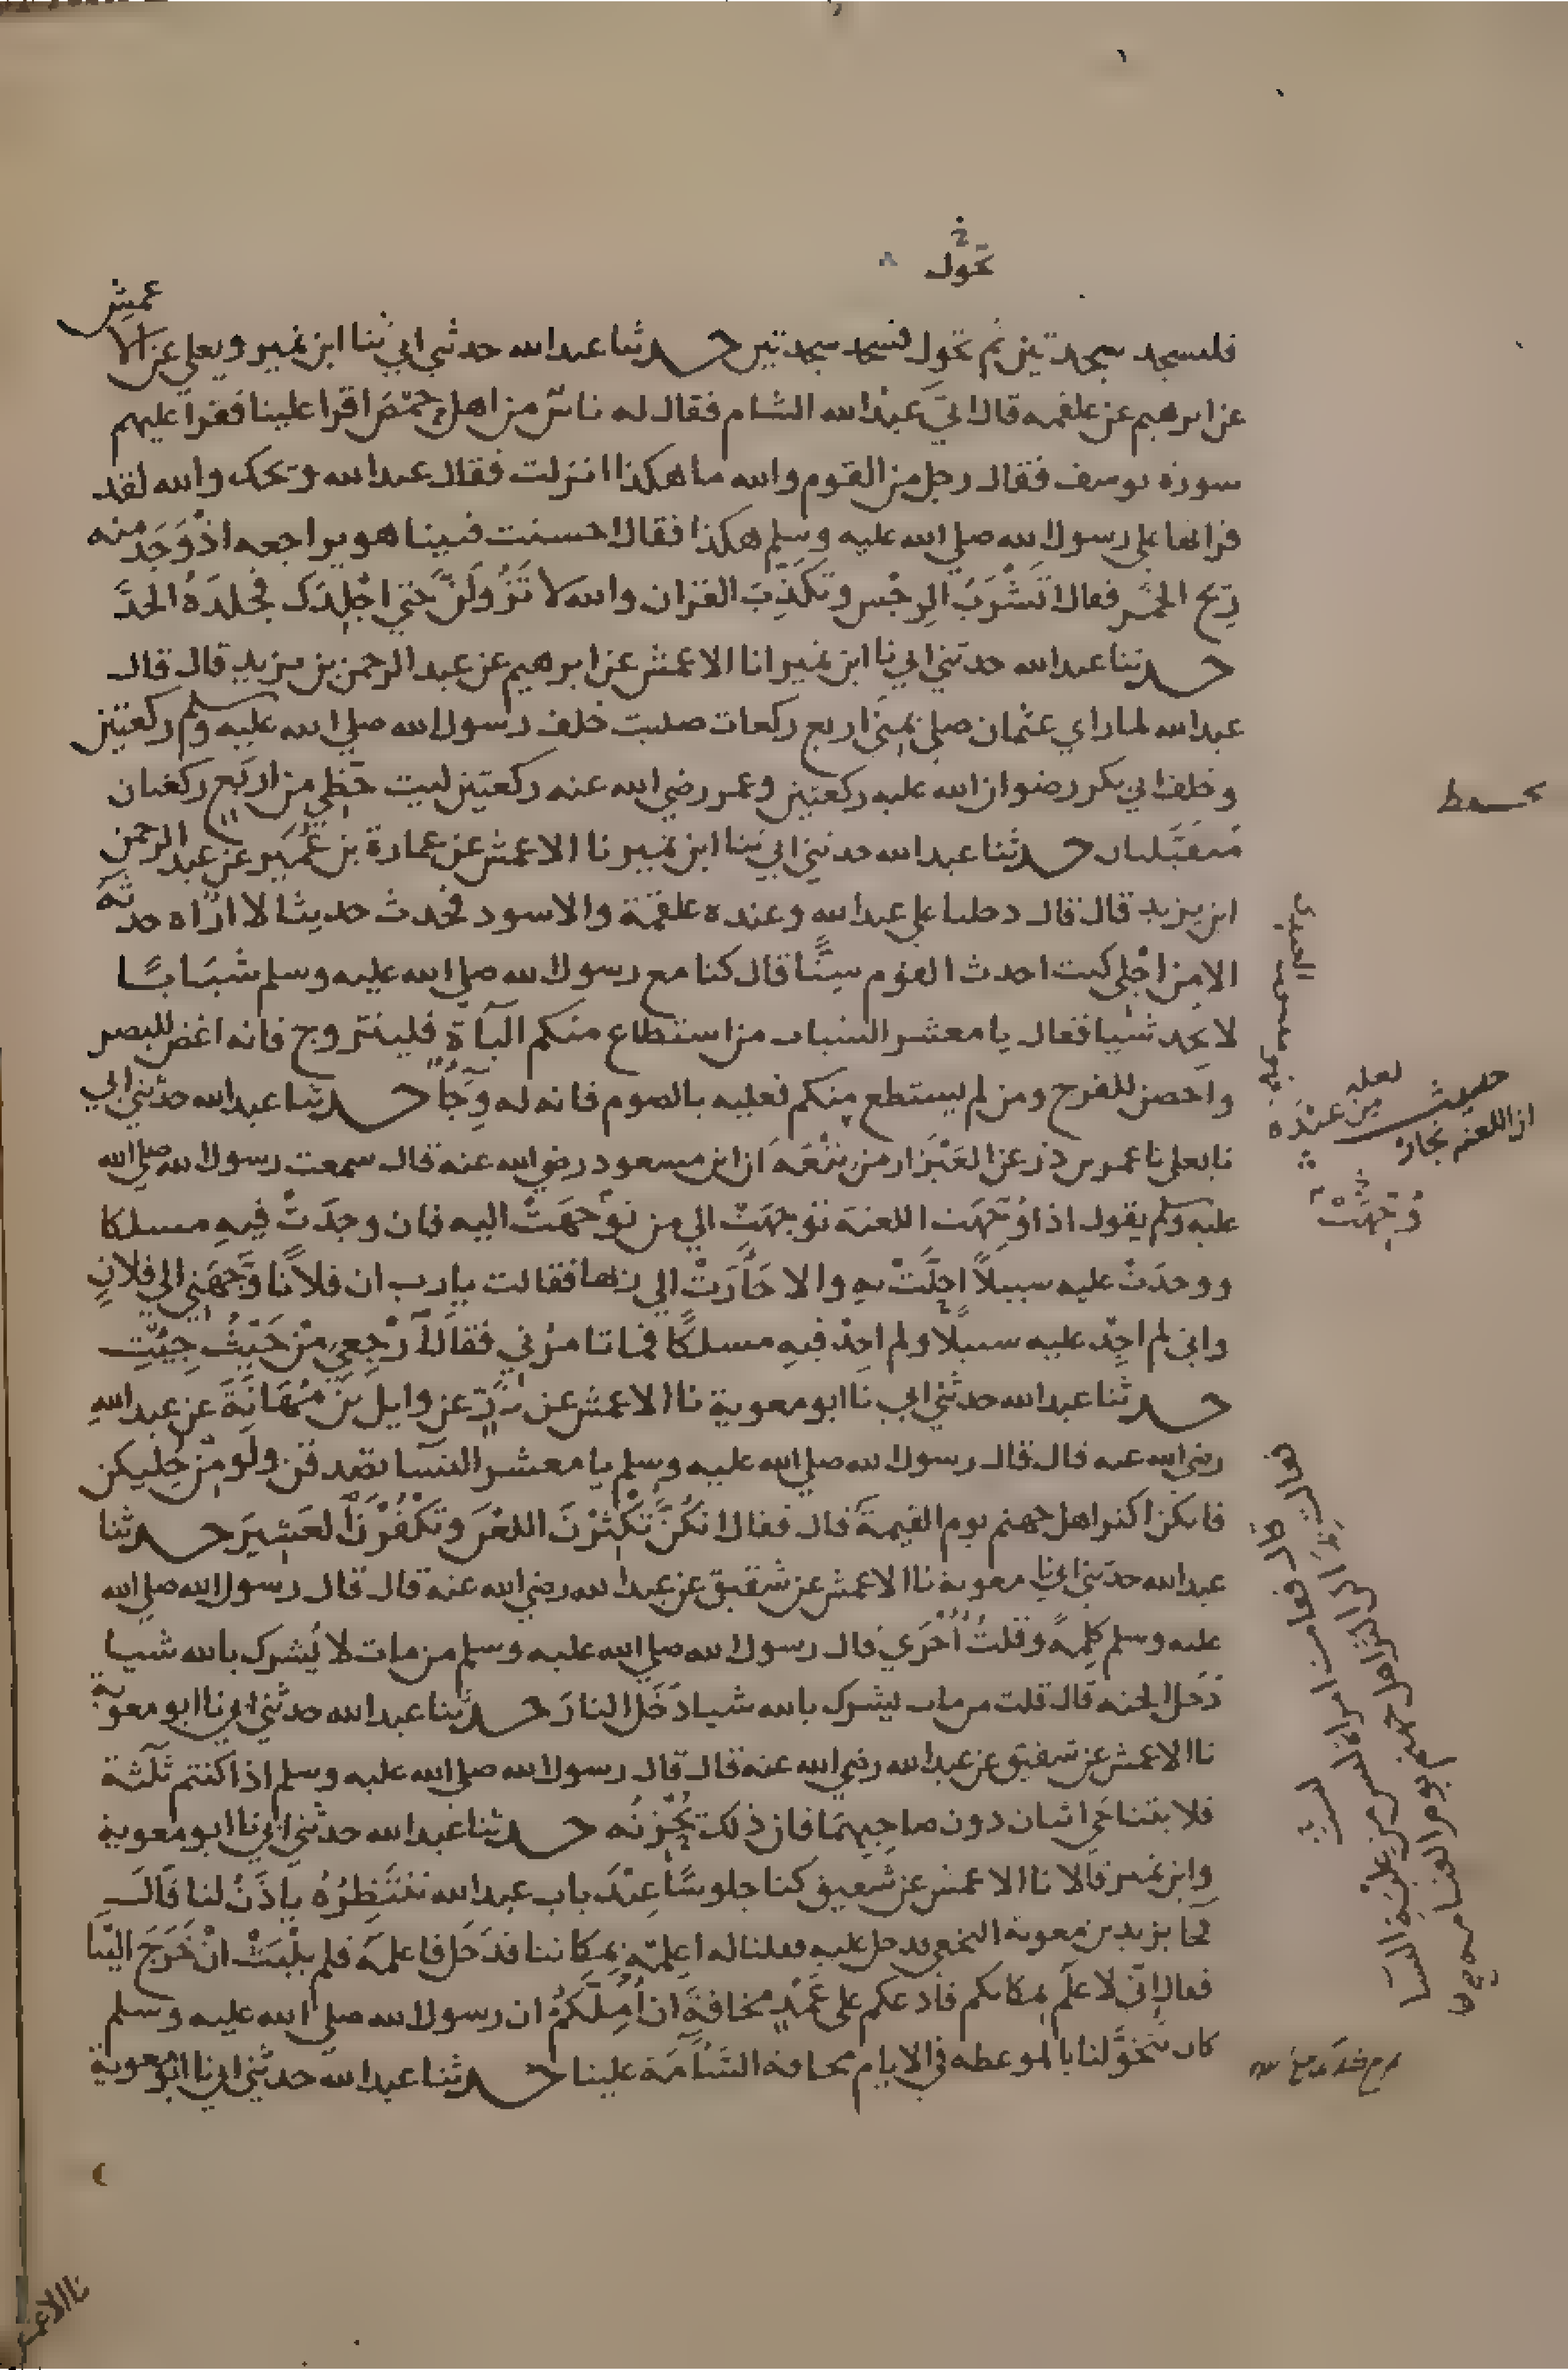 تحول
فليسجد سجدتين ثم تحول فسجد سجدتين حدثنا عبد الله حدثني ابي ثنا ابن نمير ويعلي عن الاعمش
عن ابرهيم عن علقمه قال اتي عبد الله الشام فقال له ناس من اهل حمص اقرا علينا فقرا عليهم
سورة يوسف فقال رجل من القوم والله ما هكذا انزلت فقال عبد الله ويحك والله لقد
قراتها على رسول الله صلى الله عليه وسلم هكذا فقال احسنت فبينا هو يراجعه اذ وجد منه
ريح الخمر فقال اتشرب الرجس وتكذب القران والله لا تزول حتى اجلدك فجلده الحد
حدثنا عبد الله حدثني ابي نا ابن نمير انا الاعمش عن ابرهيم عن عبد الرحمن بن يزيد قال قال
عبد الله لما راي عثمان صلى بمنى اربع ركعات صليت خلف رسول الله صلى الله عليه وسلم ركعتين
وخلف ابي بكر رضوان الله عليه ركعتين وعمر رضي الله عنه ركعتين ليت حظي من اربع ركعتان
متقبلتان حدثنا عبد الله حدثني ابي ثنا ابن نمير نا الاعمش عن عمارة بن عمير عن عبد الرحمن
ابن يزيد قال قال دخلنا على عبد الله وعنده علقمة والاسود فحدث حديثا لا اراه حدثه
الا من اجلي كنت احدث القوم سنا قال كنا مع رسول الله صلى الله عليه وسلم شبابا
لا نجد شيا فقال يا معشر الشباب من استطاع منكم الباة فليتزوج فانه اغض للبصر
واحصن للفرج ومن لم يستطع منكم فعليه بالصوم فانه له وجا حدثنا عبد الله حدثني ابي
نا يعلى نا عمر بن ذر عن العيزار من تنعه ان ابن مسعود رضي الله عنه قال سمعت رسول الله صلى الله
عليه وسلم يقول اذا وجهت اللعنة توجهت الي من توجهت اليه فان وجدت فيه مسلكا
ووجدت عليه سبيلا احلت به والا حارت الي ربها فقالت يا رب ان فلانا وجهني الى فلان
واني لم اجد عليه سبيلا ولم اجد فيه مسلكا فما تامرني فقال ارجعي من حيث جيت
حدثنا عبد الله حدثني ابي نا ابو معوية نا الاعمش عن ذر عن وايل بن مهانة عن عبد الله
رضي الله عنه قال قال رسول الله صلى الله عليه وسلم يا معشر النسا تصدقن ولو من حليكن
فانكن اكثر اهل جهنم يوم القيمة قال فقال انكن تكثرن اللعن وتكفرن العشير حدثنا
عبد الله حدثني ابي نا معوية نا الاعمش عن شقيق عن عبد الله رضي الله عنه قال قال رسول الله صلى الله
عليه وسلم كلمة وقلت اخري قال رسول الله صلى الله عليه وسلم من مات لا يشرك بالله شيا
دخل الجنه قال قلت من مات يشرك بالله شيا دخل النار حدثنا عبد الله حدثني ابي نا ابو معوية
نا الاعمش عن شقيق عن عبد الله رضي الله عنه قال قال رسول الله صلى الله عليه وسلم اذا كنتم ثلثة
فلا يتناجى اثنان دون صاحبهما فان ذلك يحزنه حدثنا عبد الله حدثني ابي نا ابو معوية
وابن نمير قالا نا الاعمش عن شقيق كنا جلوسا عند باب عبد الله ننتظره ياذن لنا قال
فجا يزيد بن معوية النخعي فدخل عليه فقلنا له اعلمه بمكاننا فدخل فاعلمه فلم يلبث ان خرج الينا
فقال اني لاعلم مكانكم فادعكم على عمد مخافة ان املكم ان رسول الله صلى الله عليه وسلم
كان يتخولنا بالموعظه في الايام مخافة السامة علينا حدثنا عبد الله حدثني ابي نا ابو معوية
لعله
من عنده
حديث
ان اللعنه تجار
وجهت
نا الاعمش